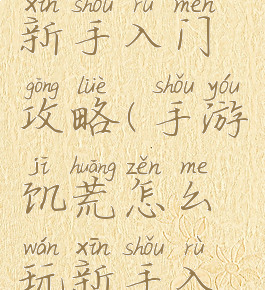 xīn shǒu rù mén
新手入门
gōng lüè shǒu yóu
攻略(手游
jī huāng zěn me
饥荒怎么
wán xīn shǒu rù
玩新手入